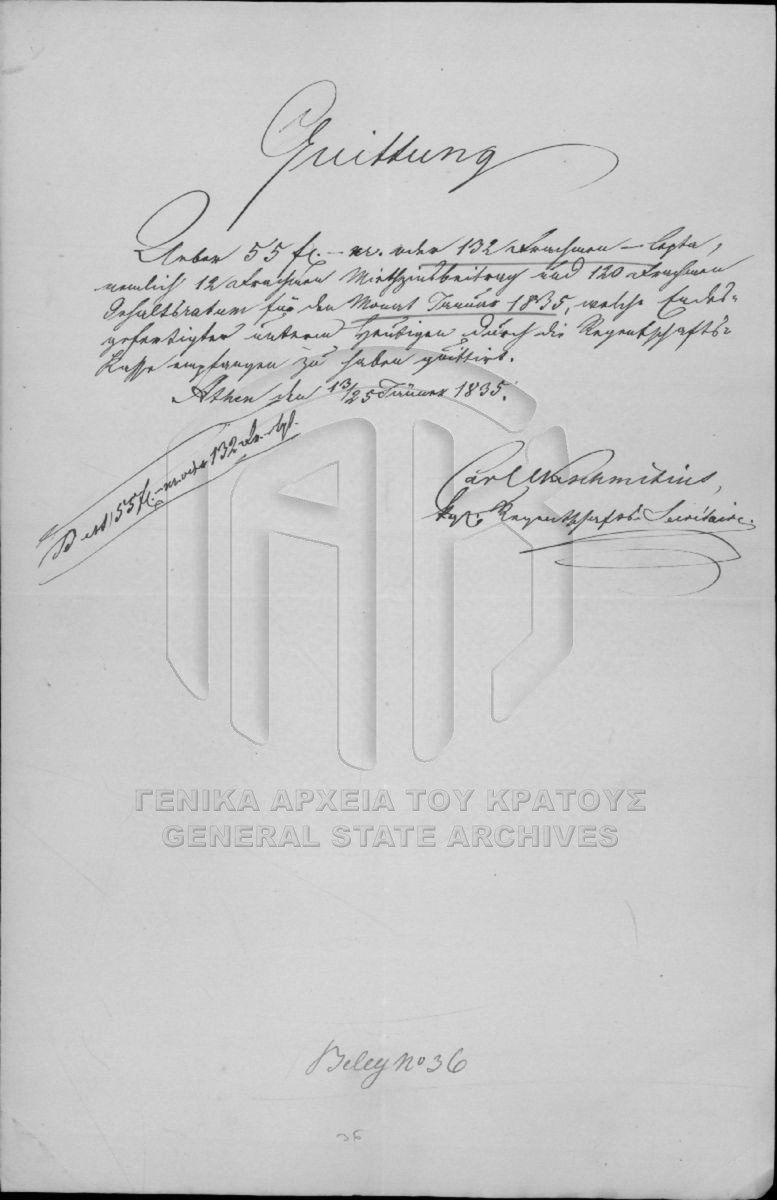 Quittung
Ueber 55 fl. – xr. oder 132 Drachmen – Lepta,
nemlich 12 Drachmen Miethzinsbeitrag und 120 Drachmen
Gehaltsratum für den Monat Januar 1835, welche Endes-
gefertigter unterm Heutigen durch die Regentschafts-
Kasse empfangen zu haben quittirt.
Athen den 13/25 Jänner 1835.
55 fl. – xr oder 132 Dr. – lpt.
Carl
kgl. Regentschafts-Secretaire.
ΓΕΝΙΚΑ ΑΡΧΕΙΑ ΤΟΥ ΚΡΑΤΟΥΣ
GENERAL STATE ARCHIVES
Beleg No 36
36